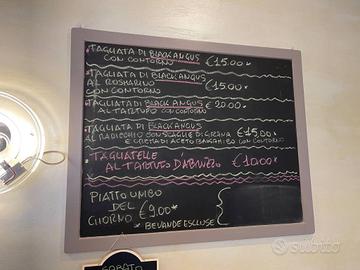 • TAGLIATA DI BLACK ANGUS
CON CONTORNO €15.00*
• TAGLIATA DI BLACK ANGUS
AL ROSMARINO €15.00*
CON CONTORNO
• TAGLIATA DI BLACK ANGUS €20.00*
AL TARTUFO CON CONTORNO
• TAGLIATA DI BLACK ANGUS
AL RADICCHIO CON SCAGLIE DI GRANA €15,00*
E CREMA DI ACETO BALSAMICO CON CONTORNO
• TAGLIATELLE
AL TARTUFO D'ABRUZZO €10.00*
PIATTO UNICO
DEL
GIORNO €9.00*
* BEVANDE ESCLUSE
SABATO
subito